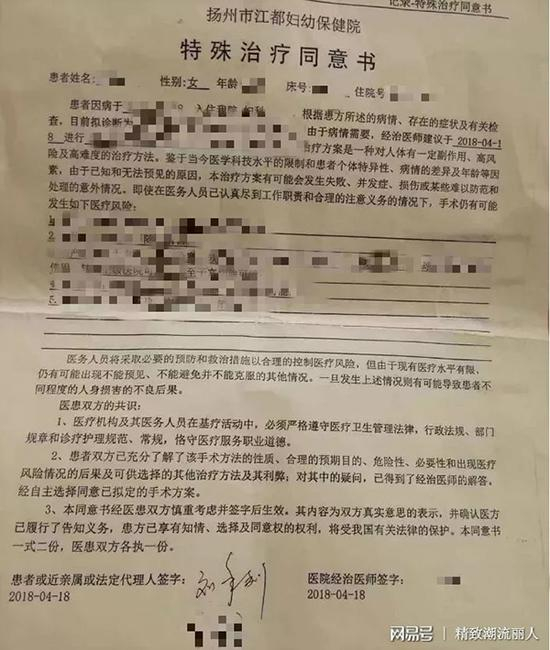 记录-特殊治疗同意书
扬州市江都妇幼保健院
特殊治疗同意书
患者姓名: 性别:女 年龄 床号: 住院号
患者因病于 根据患方所述的病情、存在的症状及有关检
查，目前拟诊断为 由于病情需要，经治医师建议于 2018-04-1
8 进行 治疗方案是一种对人体有一定副作用、高风
险及高难度的治疗方法。鉴于当今医学科技水平的限制和患者个体特异性、病情的差异及年龄等因
素，由于已知和无法预见的原因，本治疗方案有可能会发生失败、并发症、损伤或某些难以防范和
处理的意外情况。即使在医务人员已认真尽到工作职责和合理的注意义务的情况下，手术仍有可能
发生如下医疗风险:
医务人员将采取必要的预防和救治措施以合理的控制医疗风险，但由于现有医疗水平有限、
仍有可能出现不能预见、不能避免并不能克服的其他情况。一旦发生上述情况则有可能导致患者不
同程度的人身损害的不良后果。
医患双方的共识:
1、医疗机构及其医务人员在基疗活动中，必须严格遵守医疗卫生管理法律，行政法规、部门
规章和诊疗护理规范、常规，恪守医疗服务职业道德。
2、患者双方已充分了解了该手术方法的性质、合理的预期目的、危险性、必要性和出现医疗
风险情况的后果及可供选择的其他治疗方法及其利弊；对其中的疑问，已得到了经治医师的解答。
经自主选择同意已拟定的手术方案。
3、本同意书经医患双方慎重考虑并签字后生效。其内容为双方真实意思的表示，并确认医方
已履行了告知义务，患方已享有知情、选择及同意权的权利，将受我国有关法律的保护。本同意书
一式二份，医患双方各执一份。
患者或近亲属或法定代理人签字: 医院经治医师签字:
2018-04-18 2018-04-18
网易号 | 精致潮流丽人